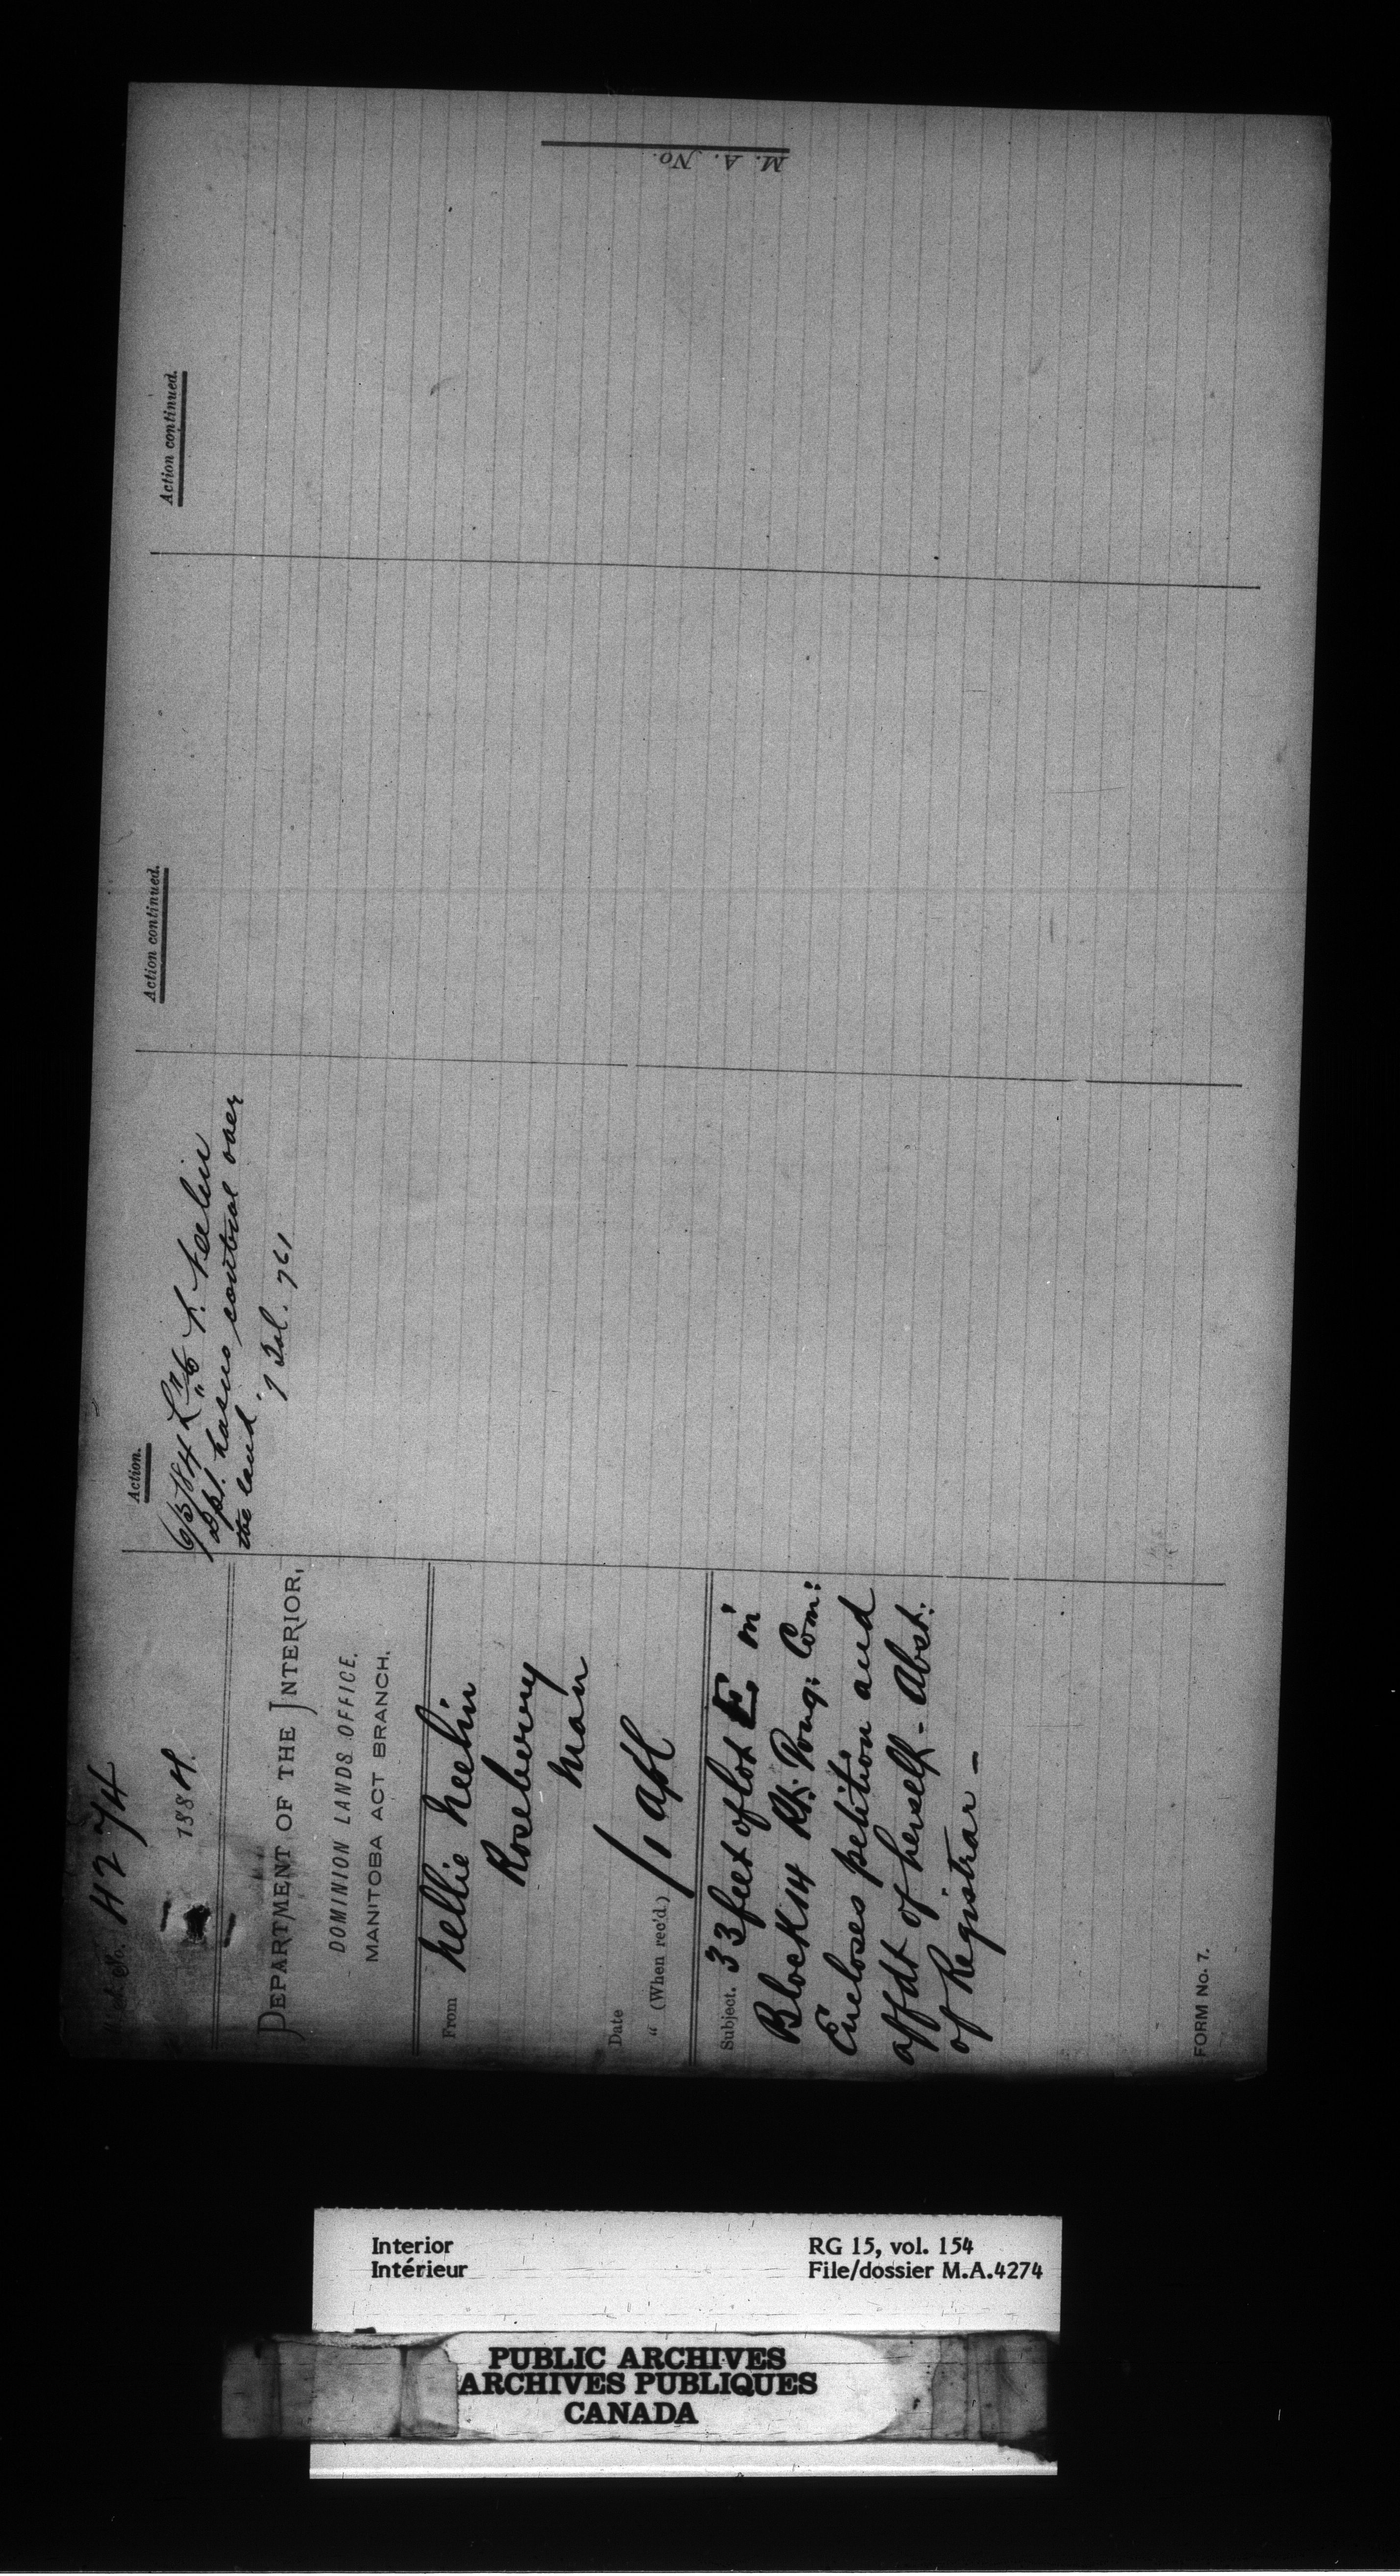 4274
1884.
DEPARTMENT OF THE INTERIOR,
DOMINION LANDS OFFICE.
MANITOBA ACT BRANCH.
From Nellie Neelin
Roseberry
Man
Date
" (When rec'd.) 11 Apl
Subject. 33 feet of lot E. in
Block 14 Rt: Poug: Com:
Encloses petition and
affdt of herself - Abst:
of Registrar -
FORM No. 7.
Action.
6/5/84 L
Dpt. has no control over
the land
7 Fol. 761
Action continued.
Action continued.
M. A. No.
Interior
Intérieur
RG 15, vol. 154
File/dossier M.A.4274
PUBLIC ARCHIVES
ARCHIVES PUBLIQUES
CANADA